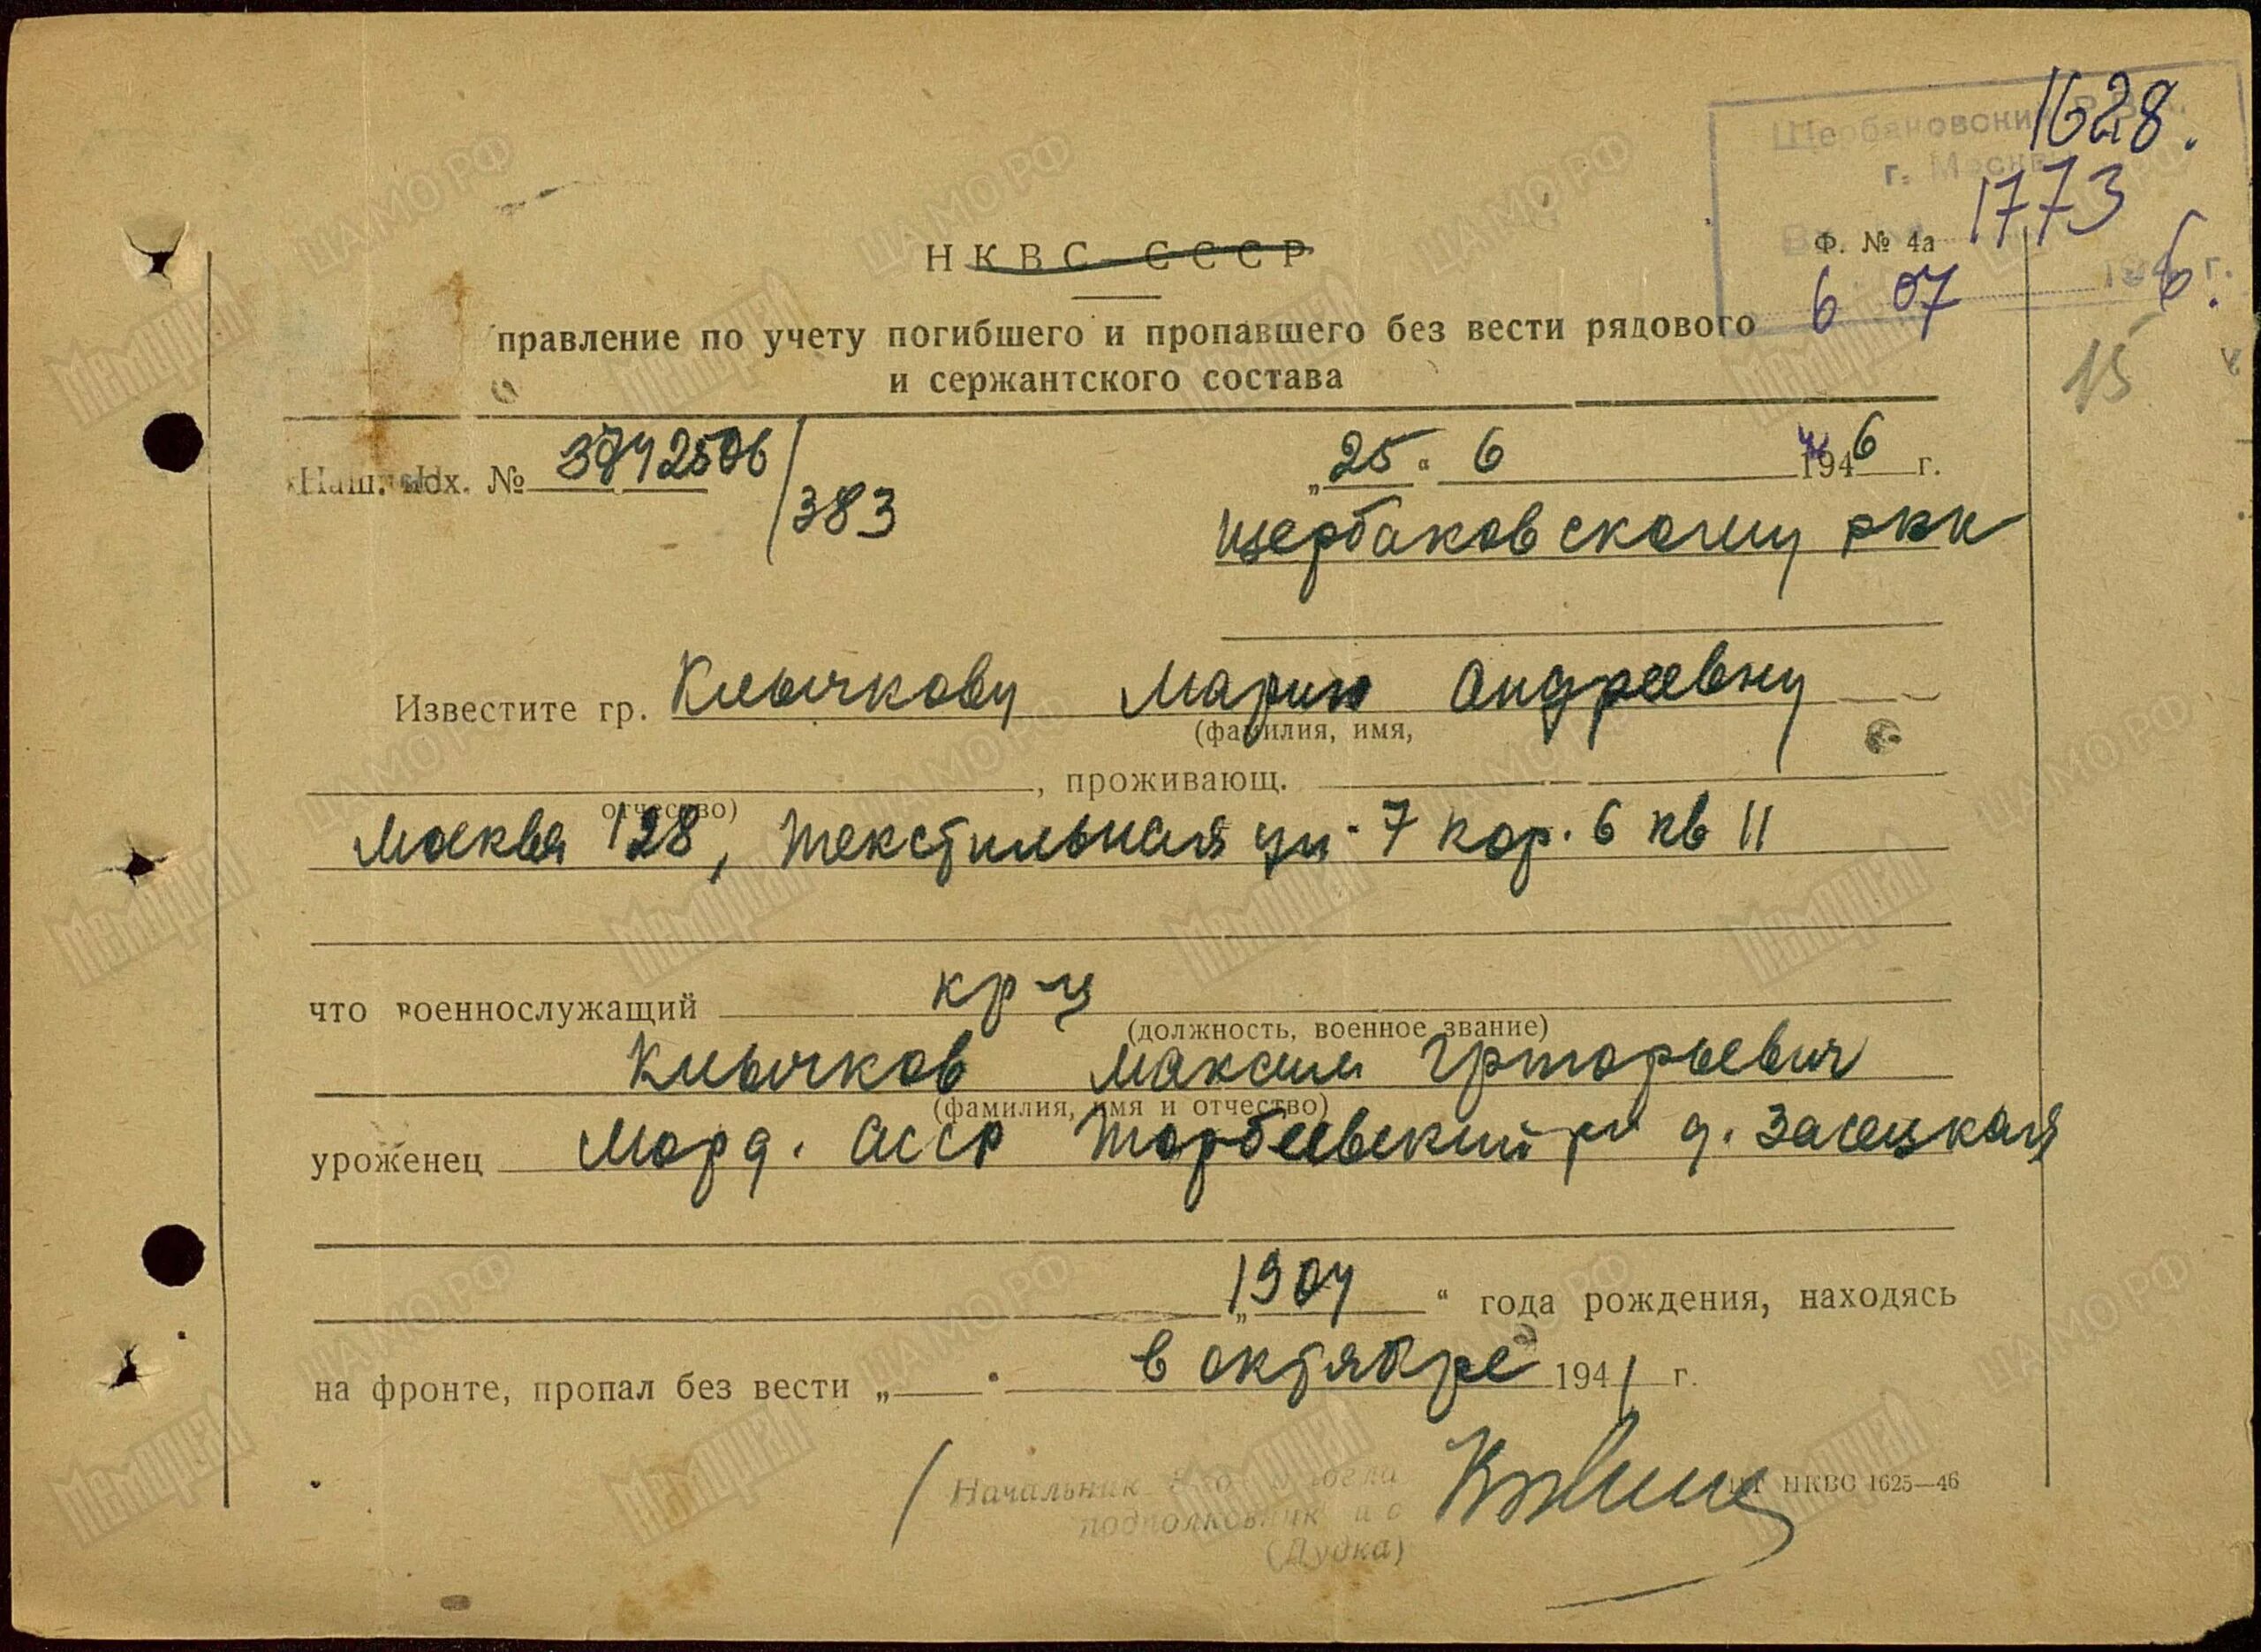 1628.
Щербаковский Р.В.К.
г. Москвы
1773
Ф. № 4а
6 07 1946 г.
НКВС СССР
правление по учету погибшего и пропавшего без вести рядового
и сержантского состава
15
Наш. Исх. № /383
„25“ 6 1946 г.
Щербаковскому рвк
Известите гр. Клычкову Марию Андреевну
(фамилия, имя,
, проживающ.
отчество)
Москва 128, Текстильная ул. 7 кор. 6 кв 11
что военнослужащий кр-ц
(должность, военное звание)
Клычков Максим Григорьевич
(фамилия, имя и отчество)
уроженец Морд. АССР Торбеевский рн д. Засецкая
„1904“ года рождения, находясь
на фронте, пропал без вести „ “ в октябре 1941 г.
Начальник отдела
подполковник и с
(Дудка)
НКВС 1625—46
ЦАМО РФ
Мемориал